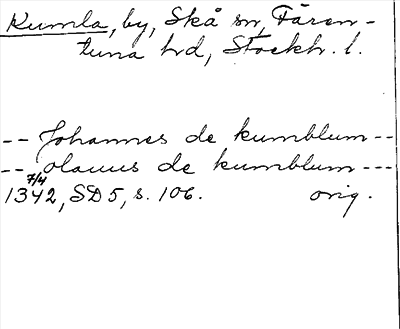 Kumla, by, Skå sn, Fären-
tuna hd, Stockh. l.
-- Johannes de kumblum --
-- olauus de kumblum ---
1342, 7/4 SD 5, s. 106. orig.